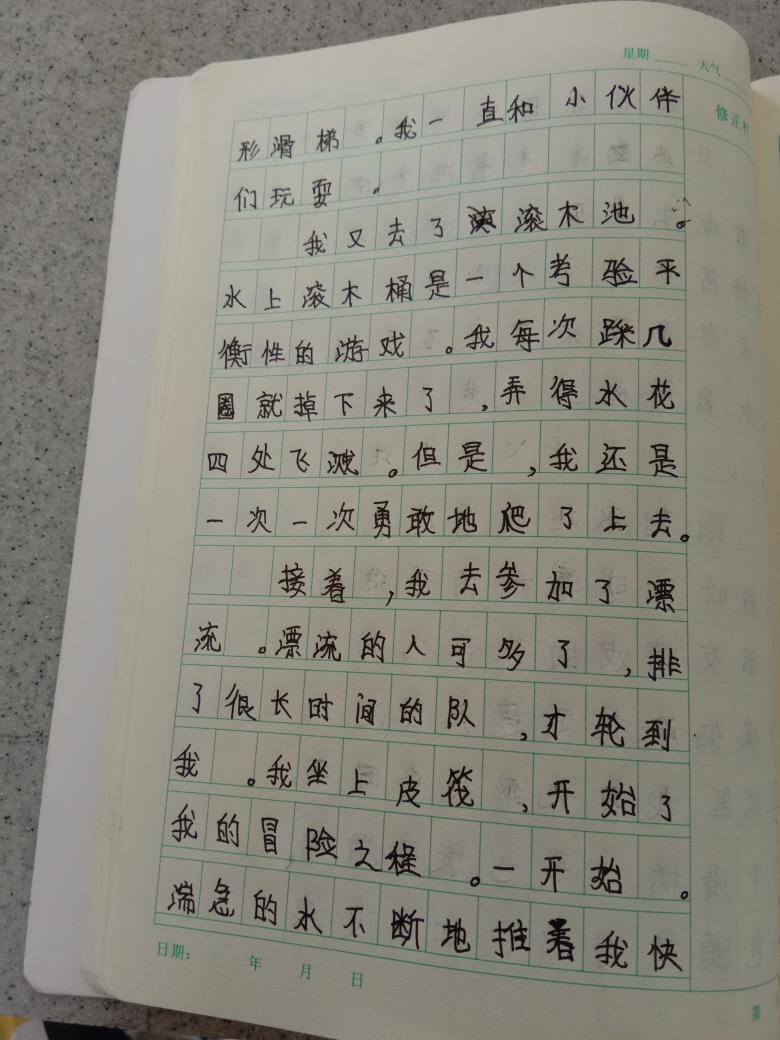 星期 天气
修正
形滑梯。我一直和小伙伴
们玩耍。
我又去了滚木池。
水上滚木桶是一个考验平
衡性的游戏。我每次踩几
圈就掉下来了,弄得水花
四处飞溅。但是,我还是
一次一次勇敢地爬了上去。
接着,我去参加了漂
流。漂流的人可多了,排
了很长时间的队,才轮到
我。我坐上皮筏,开始了
我的冒险之程。一开始。
湍急的水不断地推着我快
日期: 年 月 日
第